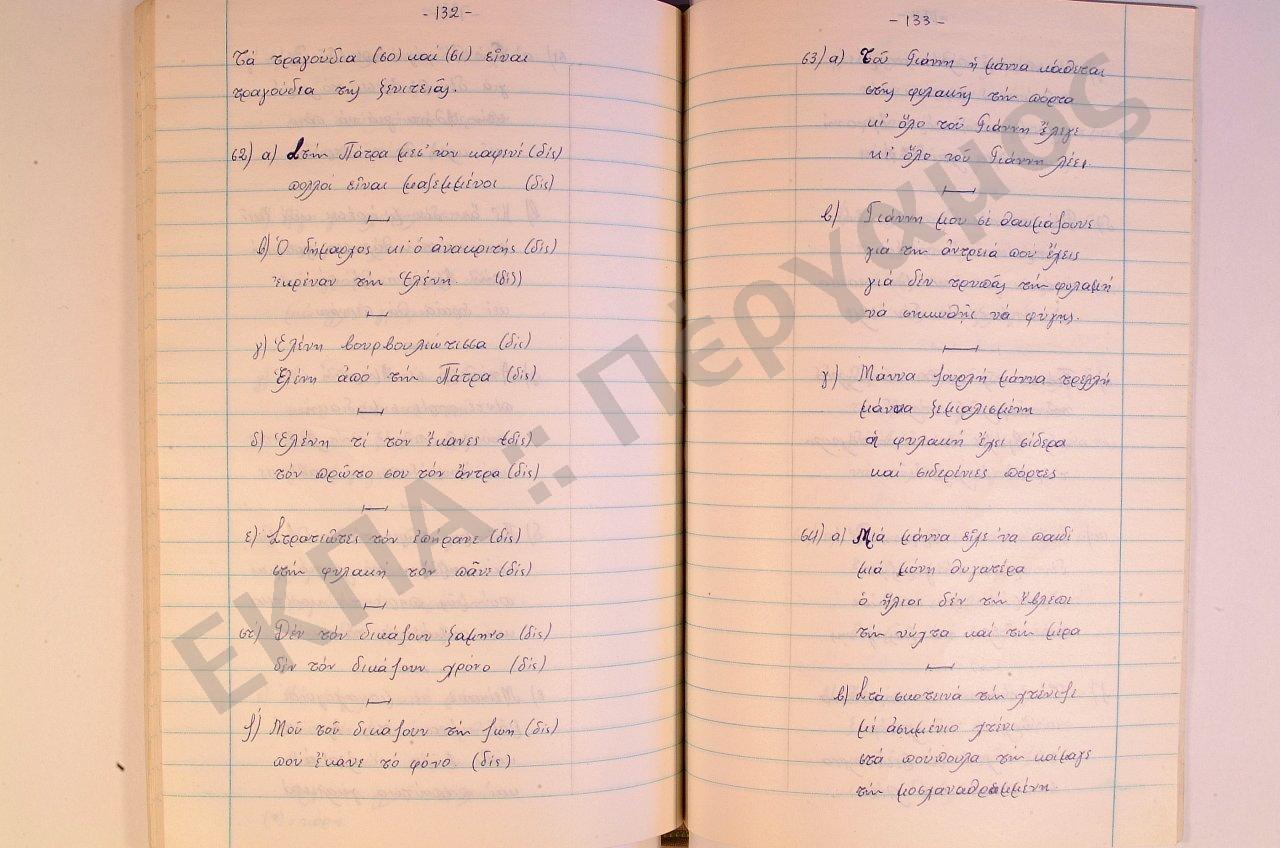 - 132 -
Τά τραγούδια (60) καί (61) εἶναι
τραγούδια τῆς ξενιτειᾶς.
62) α) Στήν Πάτρα μεσ' τόν καφενέ (δίς)
πολλοί εἶναι μαζεμμένοι (δίς)
β) Ὁ δήμαρχος κι' ὁ ἀνακριτής (δίς)
ἐκρέναν τήν Ἑλένη. (δίς)
γ) Ἑλένη βουρβουλιώτισσα (δίς)
Ἑλένη ἀπό τήν Πάτρα (δίς)
δ) Ἑλένη τί τόν ἔκανες (δίς)
τόν πρῶτο σου τόν ἄντρα (δίς)
ε) Στρατιῶτες τόν ἐπήρανε (δίς)
στήν φυλακή τόν πᾶνε (δίς)
στ) Δέν τόν δικάζουν ξάμηνο (δίς)
δέν τόν δικάζουν χρόνο (δίς)
ζ) Μοῦ τοῦ δικάζουν τήν ζωή (δίς)
πού ἔκανε τό φόνο. (δίς)
- 133 -
63) α) Τοῦ Γιάννη ἡ μάννα κάθεται
στῆς φυλακῆς τήν πόρτα
κι' ὅλο τοῦ Γιάννη ἔλεγε
κι' ὅλο τοῦ Γιάννη λέει.
β) Γιάννη μου σέ θαυμάζουνε
γιά τήν ἀντρειά πού ἔχεις
γιά δέν τρυπᾶς τήν φυλακή
νά σηκωθῇς νά φύγῃς.
γ) Μάννα ζουρλή μάννα τρελλή
μάννα ξεμυαλισμένη
ἡ φυλακή ἔχει σίδερα
καί σιδερένιες πόρτες
64) α) Μιά μάννα εἶχε ἕνα παιδί
μιά μόνη θυγατέρα
ὁ ἥλιος δέν τήν ἔβλεπε
τήν νύχτα καί τήν μέρα
β) Στά σκοτεινά τήν χτένιζε
μέ ἀσημένιο χτένι
στά πούπουλα τήν κοίμαγε
τήν μοσχαναθραμμένη.
ΕΚΠΑ .:. Πέργαμος